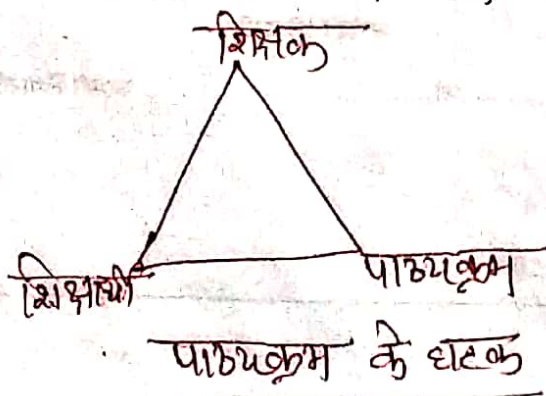 शिक्षक
शिक्षार्थी पाठ्यक्रम
पाठ्यक्रम के घटक